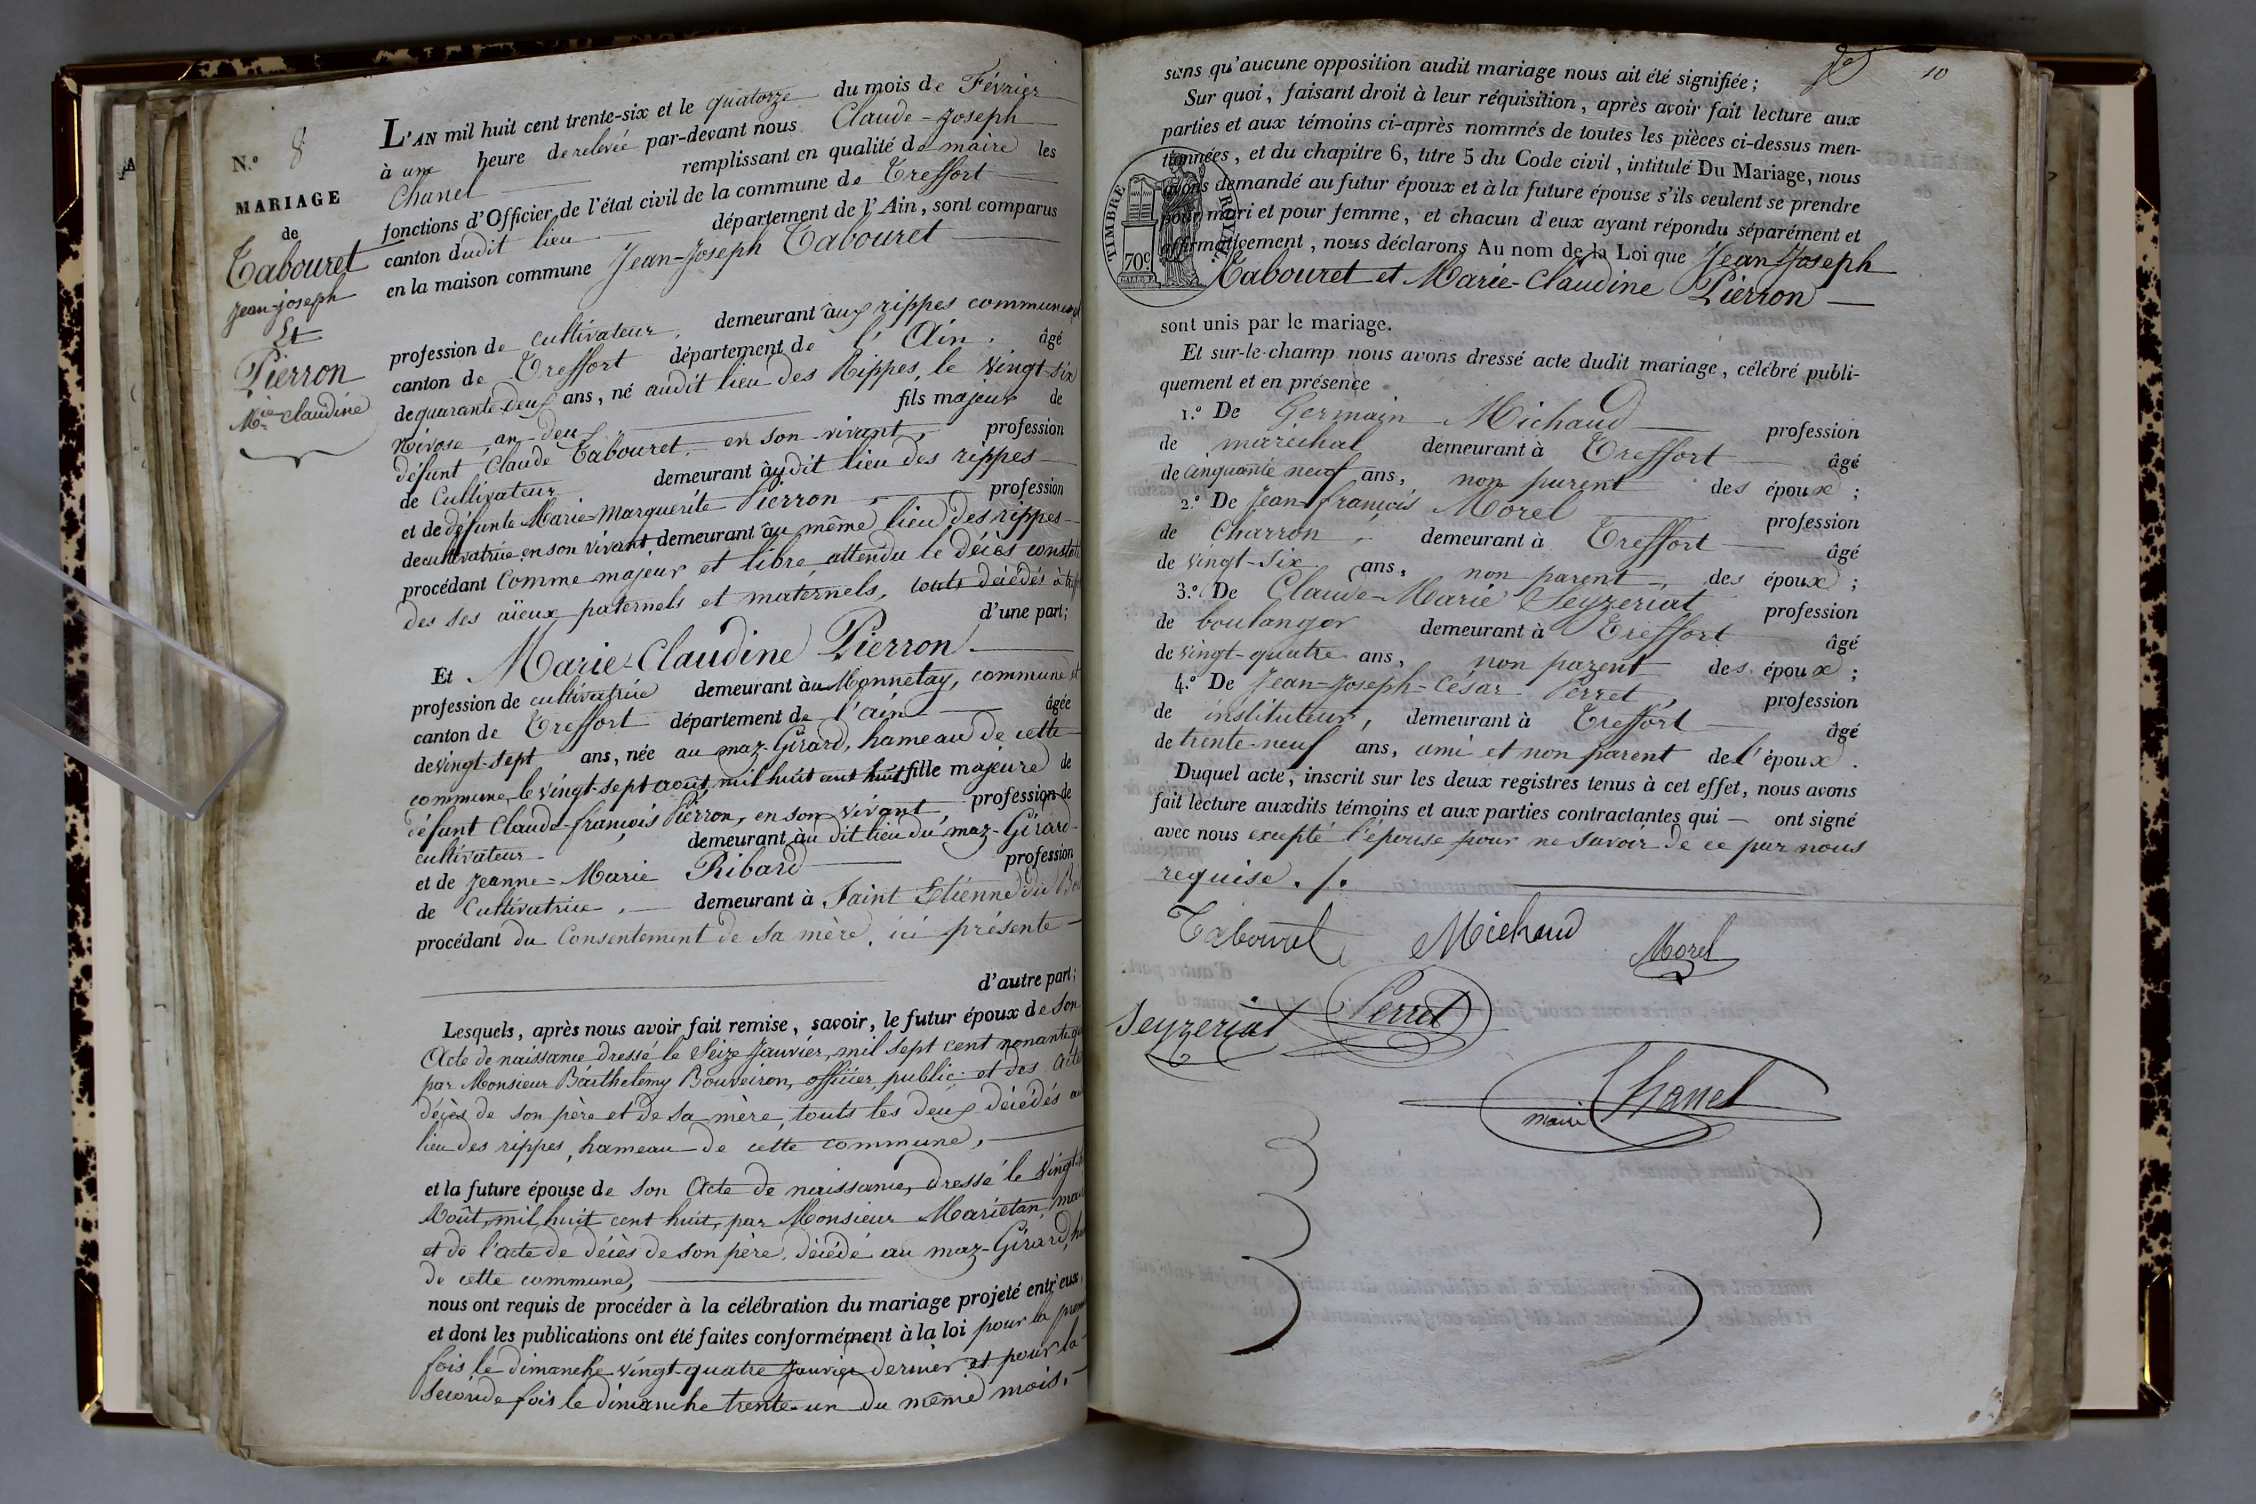 N.º 8
MARIAGE
de
Tabouret
Jean-joseph
Et
Pierron
Mie claudine
L'AN mil huit cent trente-six et le quatorze du mois de Février
à une heure de relevée par-devant nous Claude-Joseph
Chanel remplissant en qualité de maire les
fonctions d'Officier de l'état civil de la commune de Treffort
canton dudit lieu département de l'Ain, sont comparus
en la maison commune Jean-Joseph Tabouret
profession de cultivateur, demeurant aux rippes commune et
canton de Treffort département de l'Ain. âgé
de quarante-deux ans, né audit lieu des Rippes, le vingt-six
Nivose, an-deux fils majeur de
défunt Claude Tabouret en son vivant, profession
de Cultivateur demeurant âudit lieu des rippes
et de défunte Marie-Marguerite Pierron, profession
de cultivatrice en son vivant demeurant âu même lieu des rippes
procédant Comme majeur et libre attendu le décès constaté
des ses aïeux paternels et maternels, touts décédés à
d'une part;
Et Marie-Claudine Pierron
profession de cultivatrice demeurant àu Monnetay, commune et
canton de Treffort département de l'ain âgée
de vingt-sept ans, née au maz-Girard, hameau de cette
commune, le vingt-sept août mil huit cent huit fille majeure de
défunt Claude-françois Pierron, en son vivant, profession de
cultivateur demeurant àu dit lieu du maz-Girard
et de Jeanne-Marie Ribard profession
de Cultivatrice, demeurant à Saint Etienne du
procédant du Consentement de sa mère, ici présente
d'autre part;
Lesquels, après nous avoir fait remise, savoir, le futur époux de son
Acte de naissance dressé le Seize Janvier, mil sept cent nonante
par Monsieur Barthelemy Bouveiron, officier public et des Actes
décès de son père et de sa mère, touts les deux décédés au
lieu des rippes, hameau de cette commune,
et la future épouse de son Acte de naissance, dressé le vingt
Août, mil huit cent huit, par Monsieur Mariétan,
et de l'acte de décès de son père, décédé au maz-Girard,
de cette commune,
nous ont requis de procéder à la célébration du mariage projeté entr'eux,
et dont les publications ont été faites conformément à la loi pour la
fois le dimanche vingt-quatre Janvier dernier et pour la
seconde fois le dimanche trente-un du même mois.
10
sans qu'aucune opposition audit mariage nous ait été signifiée;
Sur quoi, faisant droit à leur réquisition, après avoir fait lecture aux
parties et aux témoins ci-après nommés de toutes les pièces ci-dessus men-
tionnées, et du chapitre 6, titre 5 du Code civil, intitulé Du Mariage, nous
avons demandé au futur époux et à la future épouse s'ils veulent se prendre
pour mari et pour femme, et chacun d'eux ayant répondu séparément et
affirmativement, nous déclarons Au nom de la Loi que Jean-Joseph
Tabouret et Marie-Claudine Pierron
TIMBRE ROYAL.
70c
sont unis par le mariage.
Et sur-le-champ nous avons dressé acte dudit mariage, célébré publi-
quement et en présence
1.º De Germain Michaud profession
de maréchal demeurant à Treffort âgé
de cinquante neuf ans, non parent des époux;
2.º De Jean-françois Morel profession
de Charron, demeurant à Treffort âgé
de vingt-six ans, non parent, des époux;
3.º De Claude-Marie Seyzeriat profession
de boulanger demeurant à Treffort âgé
de vingt-quatre ans, non parent des époux;
4.º De Jean-Joseph-César Perret, profession
de instituteur, demeurant à Treffort âgé
de trente-neuf ans, ami et non parent de l'époux.
Duquel acte, inscrit sur les deux registres tenus à cet effet, nous avons
fait lecture auxdits témoins et aux parties contractantes qui — ont signé
avec nous excepté l'épouse pour ne savoir de ce par nous
requise./.
Tabouret Michaud Morel
Seyzeriat Perret
Chanel
maire